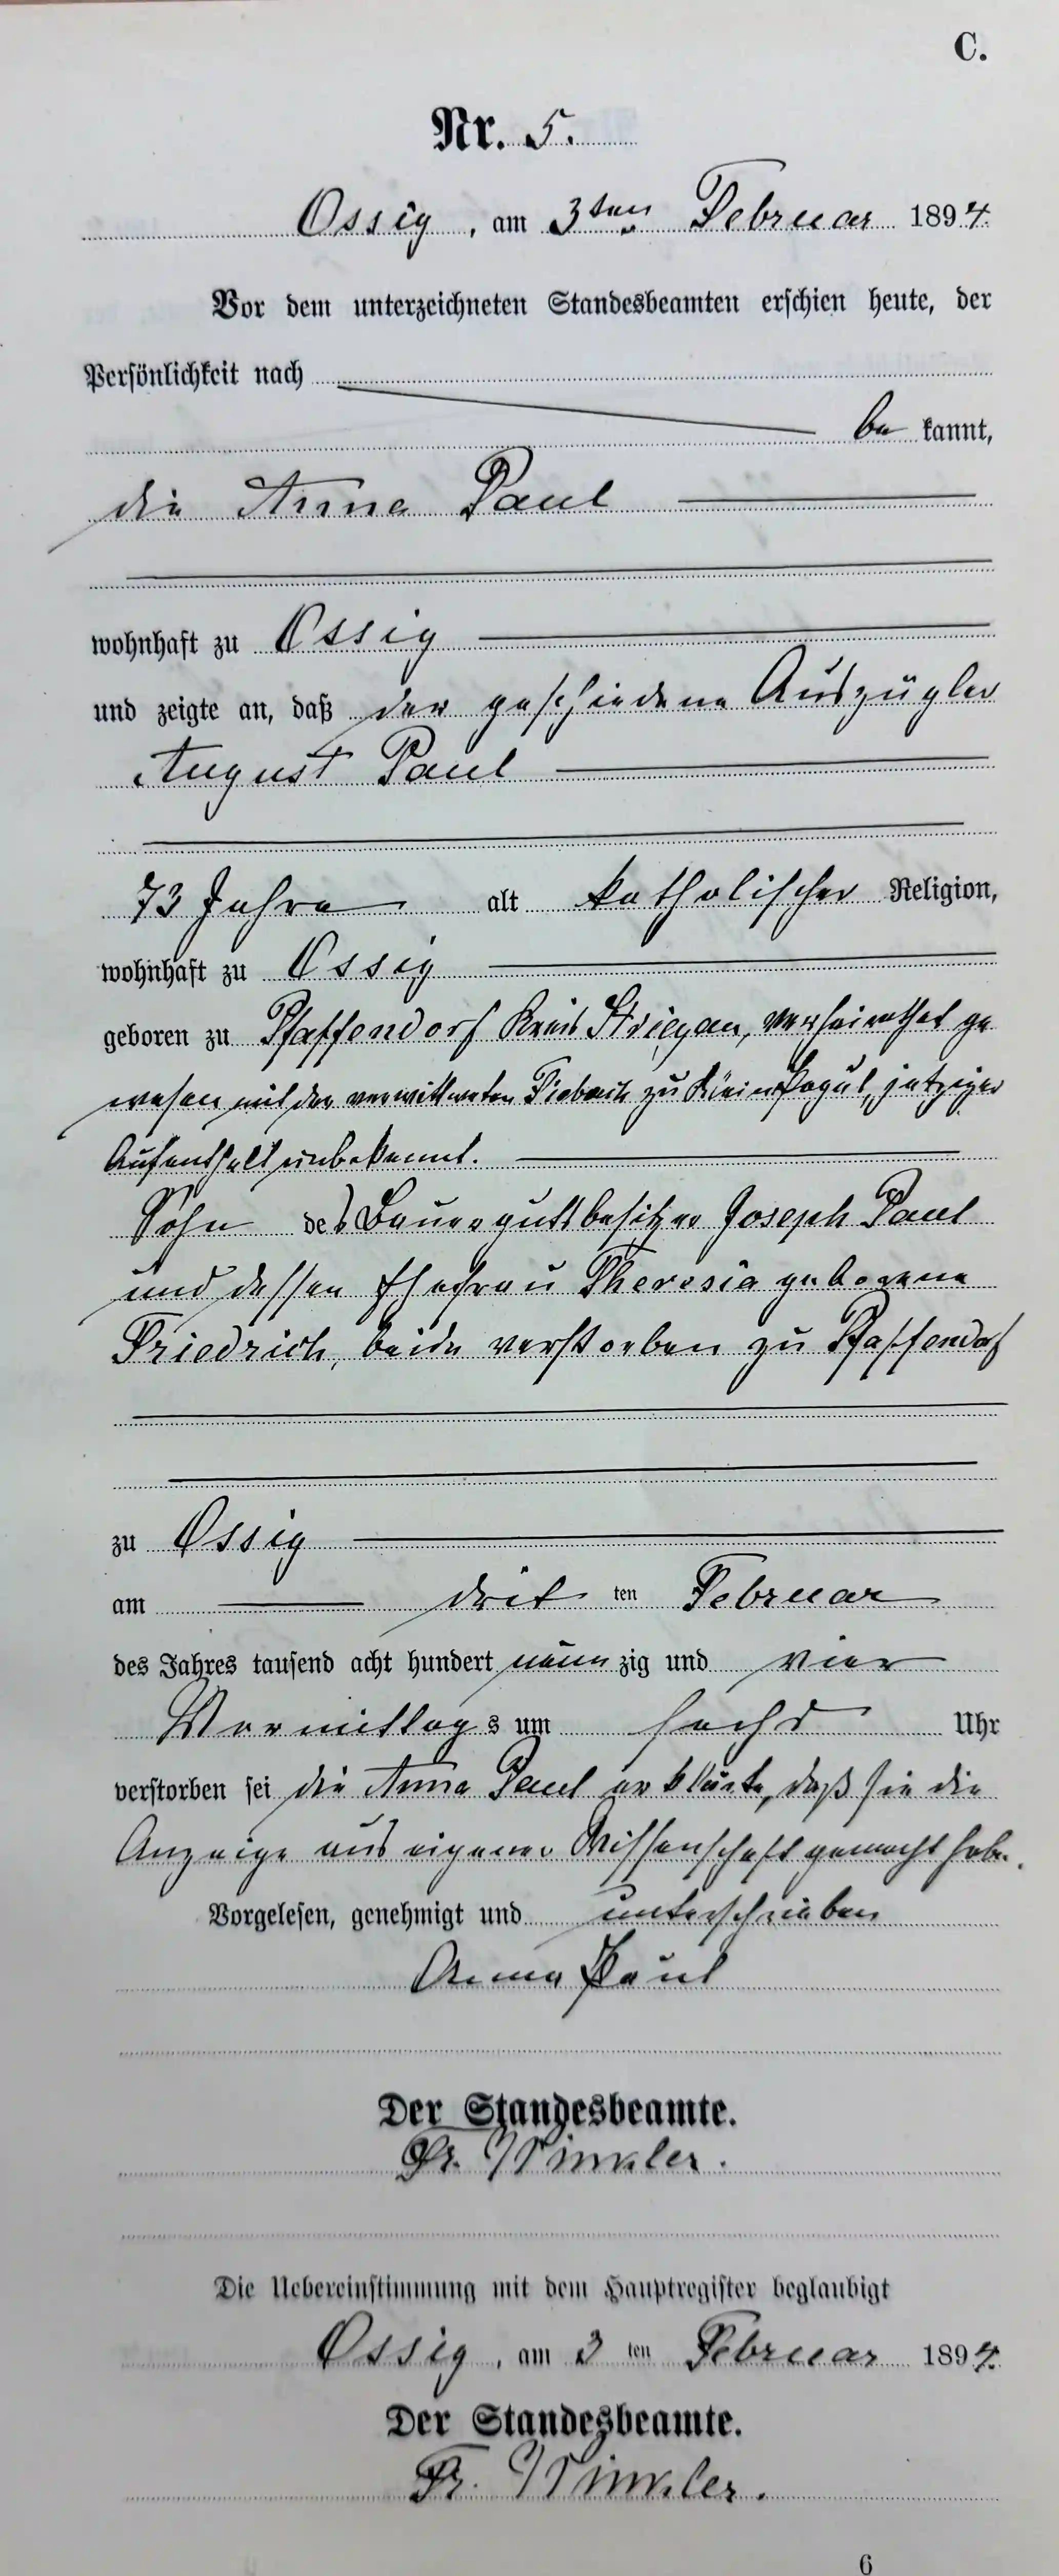 C.
Nr. 5.
Ossig, am 3ten Februar 1894.
Vor dem unterzeichneten Standesbeamten erschien heute, der
Persönlichkeit nach
be kannt,
die Anna Paul
wohnhaft zu Ossig
und zeigte an, daß der geschiedene Auszügler
August Paul
73 Jahre alt katholischer Religion,
wohnhaft zu Ossig
geboren zu Pfaffendorf Kreis Striegau, verheirathet ge
wesen mit der verwittweten zu Klein Pogul, jetziger
Aufenthalt unbekannt.
Sohn des Bauergutsbesitzer Joseph Paul
und dessen Ehefrau Theresia geborene
Friedrich, beide verstorben zu Pfaffendorf
zu Ossig
am drit ten Februar
des Jahres tausend acht hundert neun zig und vier
Vormittags um sechs Uhr
verstorben sei die Anna Paul erklärte, daß sie die
Anzeige aus eigener Wissenschaft gemacht habe.
Vorgelesen, genehmigt und unterschrieben
Anna Paul
Der Standesbeamte.
Fr. Winkler.
Die Uebereinstimmung mit dem Hauptregister beglaubigt
Ossig, am 3 ten Februar 1894.
Der Standesbeamte.
Fr. Winkler.
6